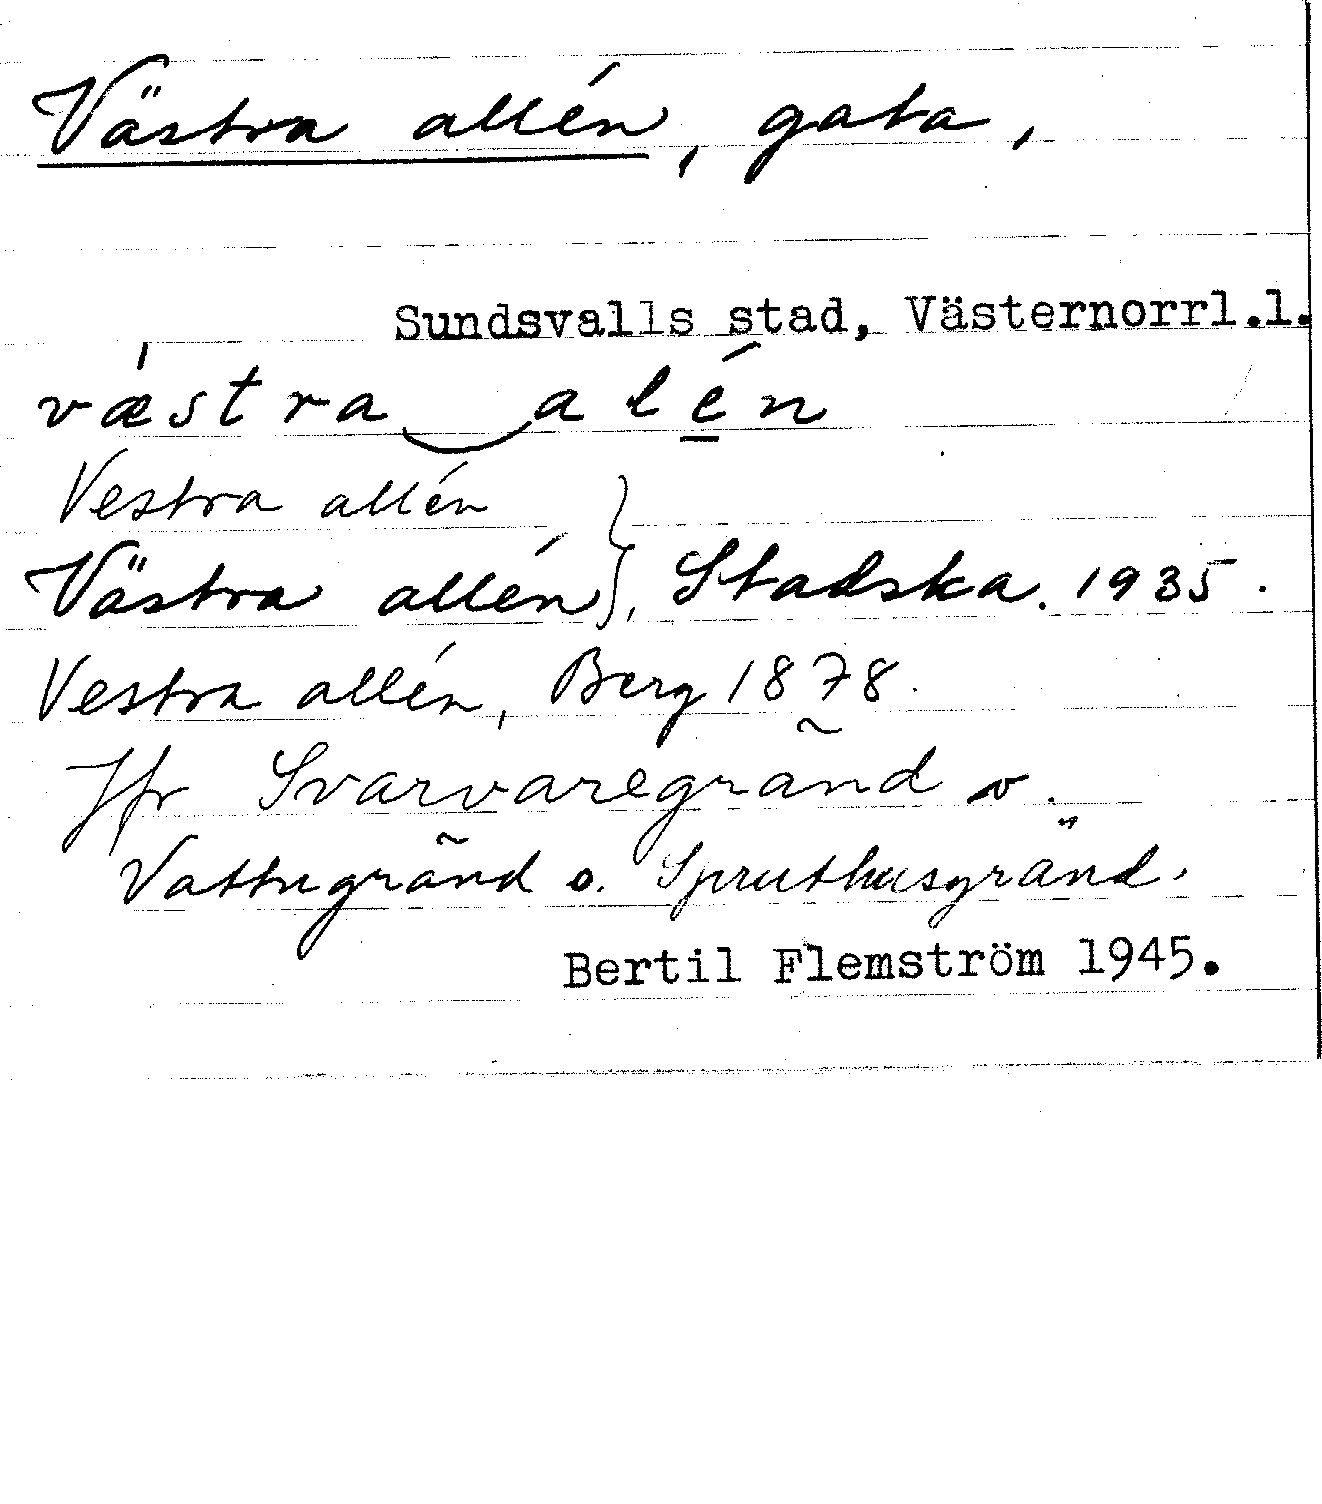 Västra allén, gata,
Sundsvalls stad, Västernorrl.l.
vǽstra‿alén
Vestra allén
Västra allén}, Stadska. 1935.
Vestra allén, Berg 1878.
Jfr Svarvaregränd o.
Vattugränd o. Spruthusgränd.
Bertil Flemström 1945.